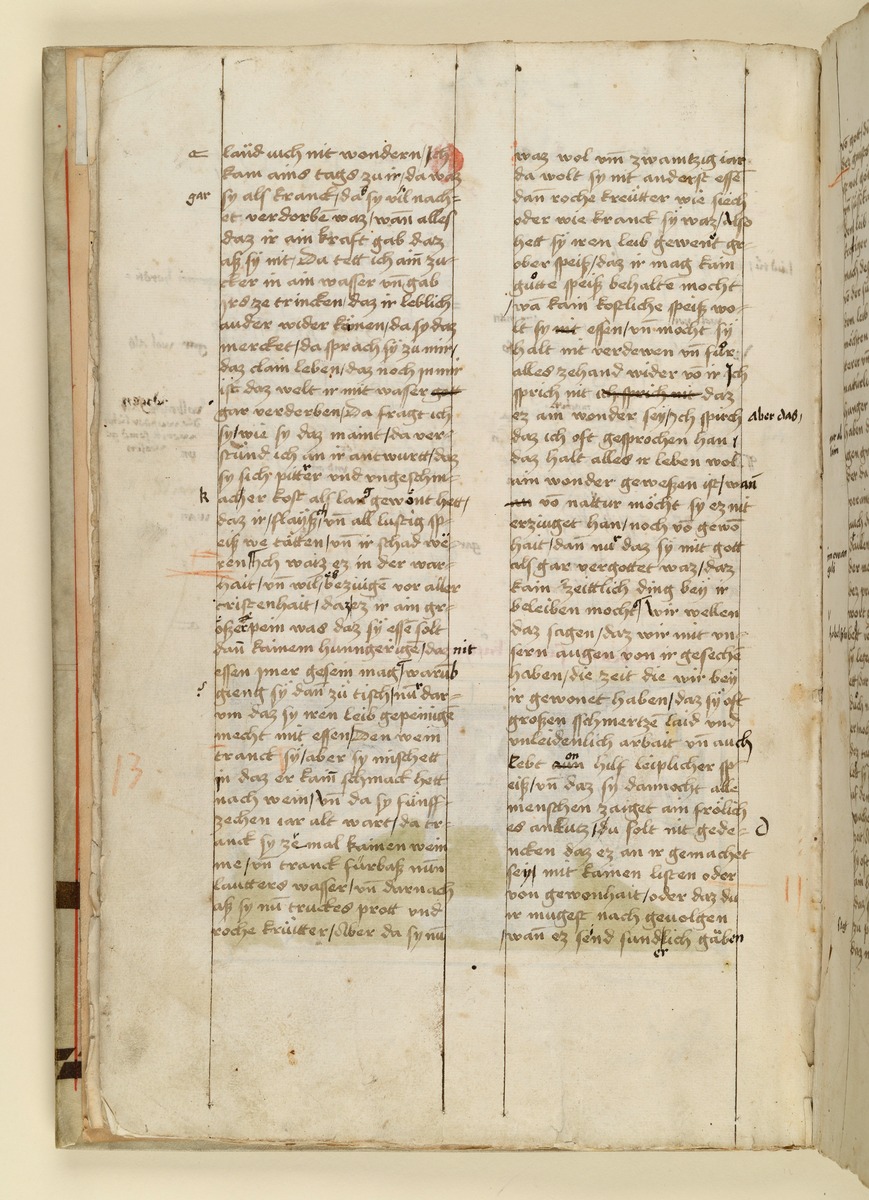 laüd üuch nit wondern / Ich
kam ains tags zu ir / da waz
gar
sy als kranck / da sy vil nach=
et verdorbē waz / wan̄ alles
daz ir ain kraft gab daz
aß sy nit / Da tett ich ain zu=
cker in ain wasser vn̄ gab
irs ze trincken / daz ir leblich=
au der wider kömen / da sy daz
mercket / da sprach sy zu mir /
daz clain leben / daz noch in mir
ist daz welt ir mit wasser
gar verderben / Da fragt ich
sy / wie sy daz maint / da ver=
stůnd ich an ir antwurt / daz
sy sich pitter vnd vngeschm=
k
acher kost als lang gewont hett /
daz ir / flaÿsch / vn̄ all lustig sp=
eiß we tätten / vn̄ ir schad we=
ren / Ich waiz ez in der war=
hait / vn̄ wil bezeugē vor aller
cristenhait / daz ez ir ain gr=
ößer pein was daz sÿ essē solt
dan̄ kainem hunngerigē / daz nit
essen ymer gesein mag / warūb
gieng sy dan̄ zů tisch / nur dar=
vm daz sy iren leib gepeinigē
mecht mit essen / Den wein
tranck sy / aber sy mischett
in daz er kain̄ schmack hett
nach wein / Vn̄ da sy fünff=
zechen iar alt wart / da tr=
anck sy ze mal kainen wein
me / vn̄ tranck fürbaß nun̄
lautters wasser / vn̄ darnach
aß sy nū truckes prott vnd
roche krütter / Aber da sy nu
waz wol vm̄ zwaintzig iar
da wolt sy nit anderst essē
dan̄ roche kreütter wie siech
oder wie kranck sy waz / Also
hett sy iren leib gewent gr=
ober speiß / daz ir mag kain
gůtte speiß behalte mocht
/ wā kain kostliche speiß wo=
lt sy essen / vn̄ mocht sy
halt nit verdewen vn̄ für
alles zehand wider vō ir / Ich
sprich nit ich sprich nit daz
ez ain wonder sey / Ich sprich Aber das /
daz ich oft gesprochen han /
daz halt alles ir leben wol
ain wonder gewesen ist / wan̄
vō nattur möcht sy ez nit
erzüget han / noch vō gewō
hait / dan̄ nur daz sy mit gott
als gar vergottet waz / daz
kain zeittlich ding bey ir
beleiben mocht / Wir wellen
daz sagen / daz wir mit vn=
sern augen von ir gesechē
haben / die zeit die wir bey
ir gewonet haben / daz sy oft
großen schmertzē laid vnd
vnleidenlich arbait vn̄ auch
lebt on hilf leiplicher sp=
eiß / vn̄ daz sy dannocht alle
menschen zaiget ain frölich
es antlutz / du solt nit gede=
ncken daz ez an ir gemachet
sey / mit kainen listen oder
von gewonhait / oder daz du
ir mugest nach geuolgen
/ wan̄ ez send sunderlich gäben
13
11